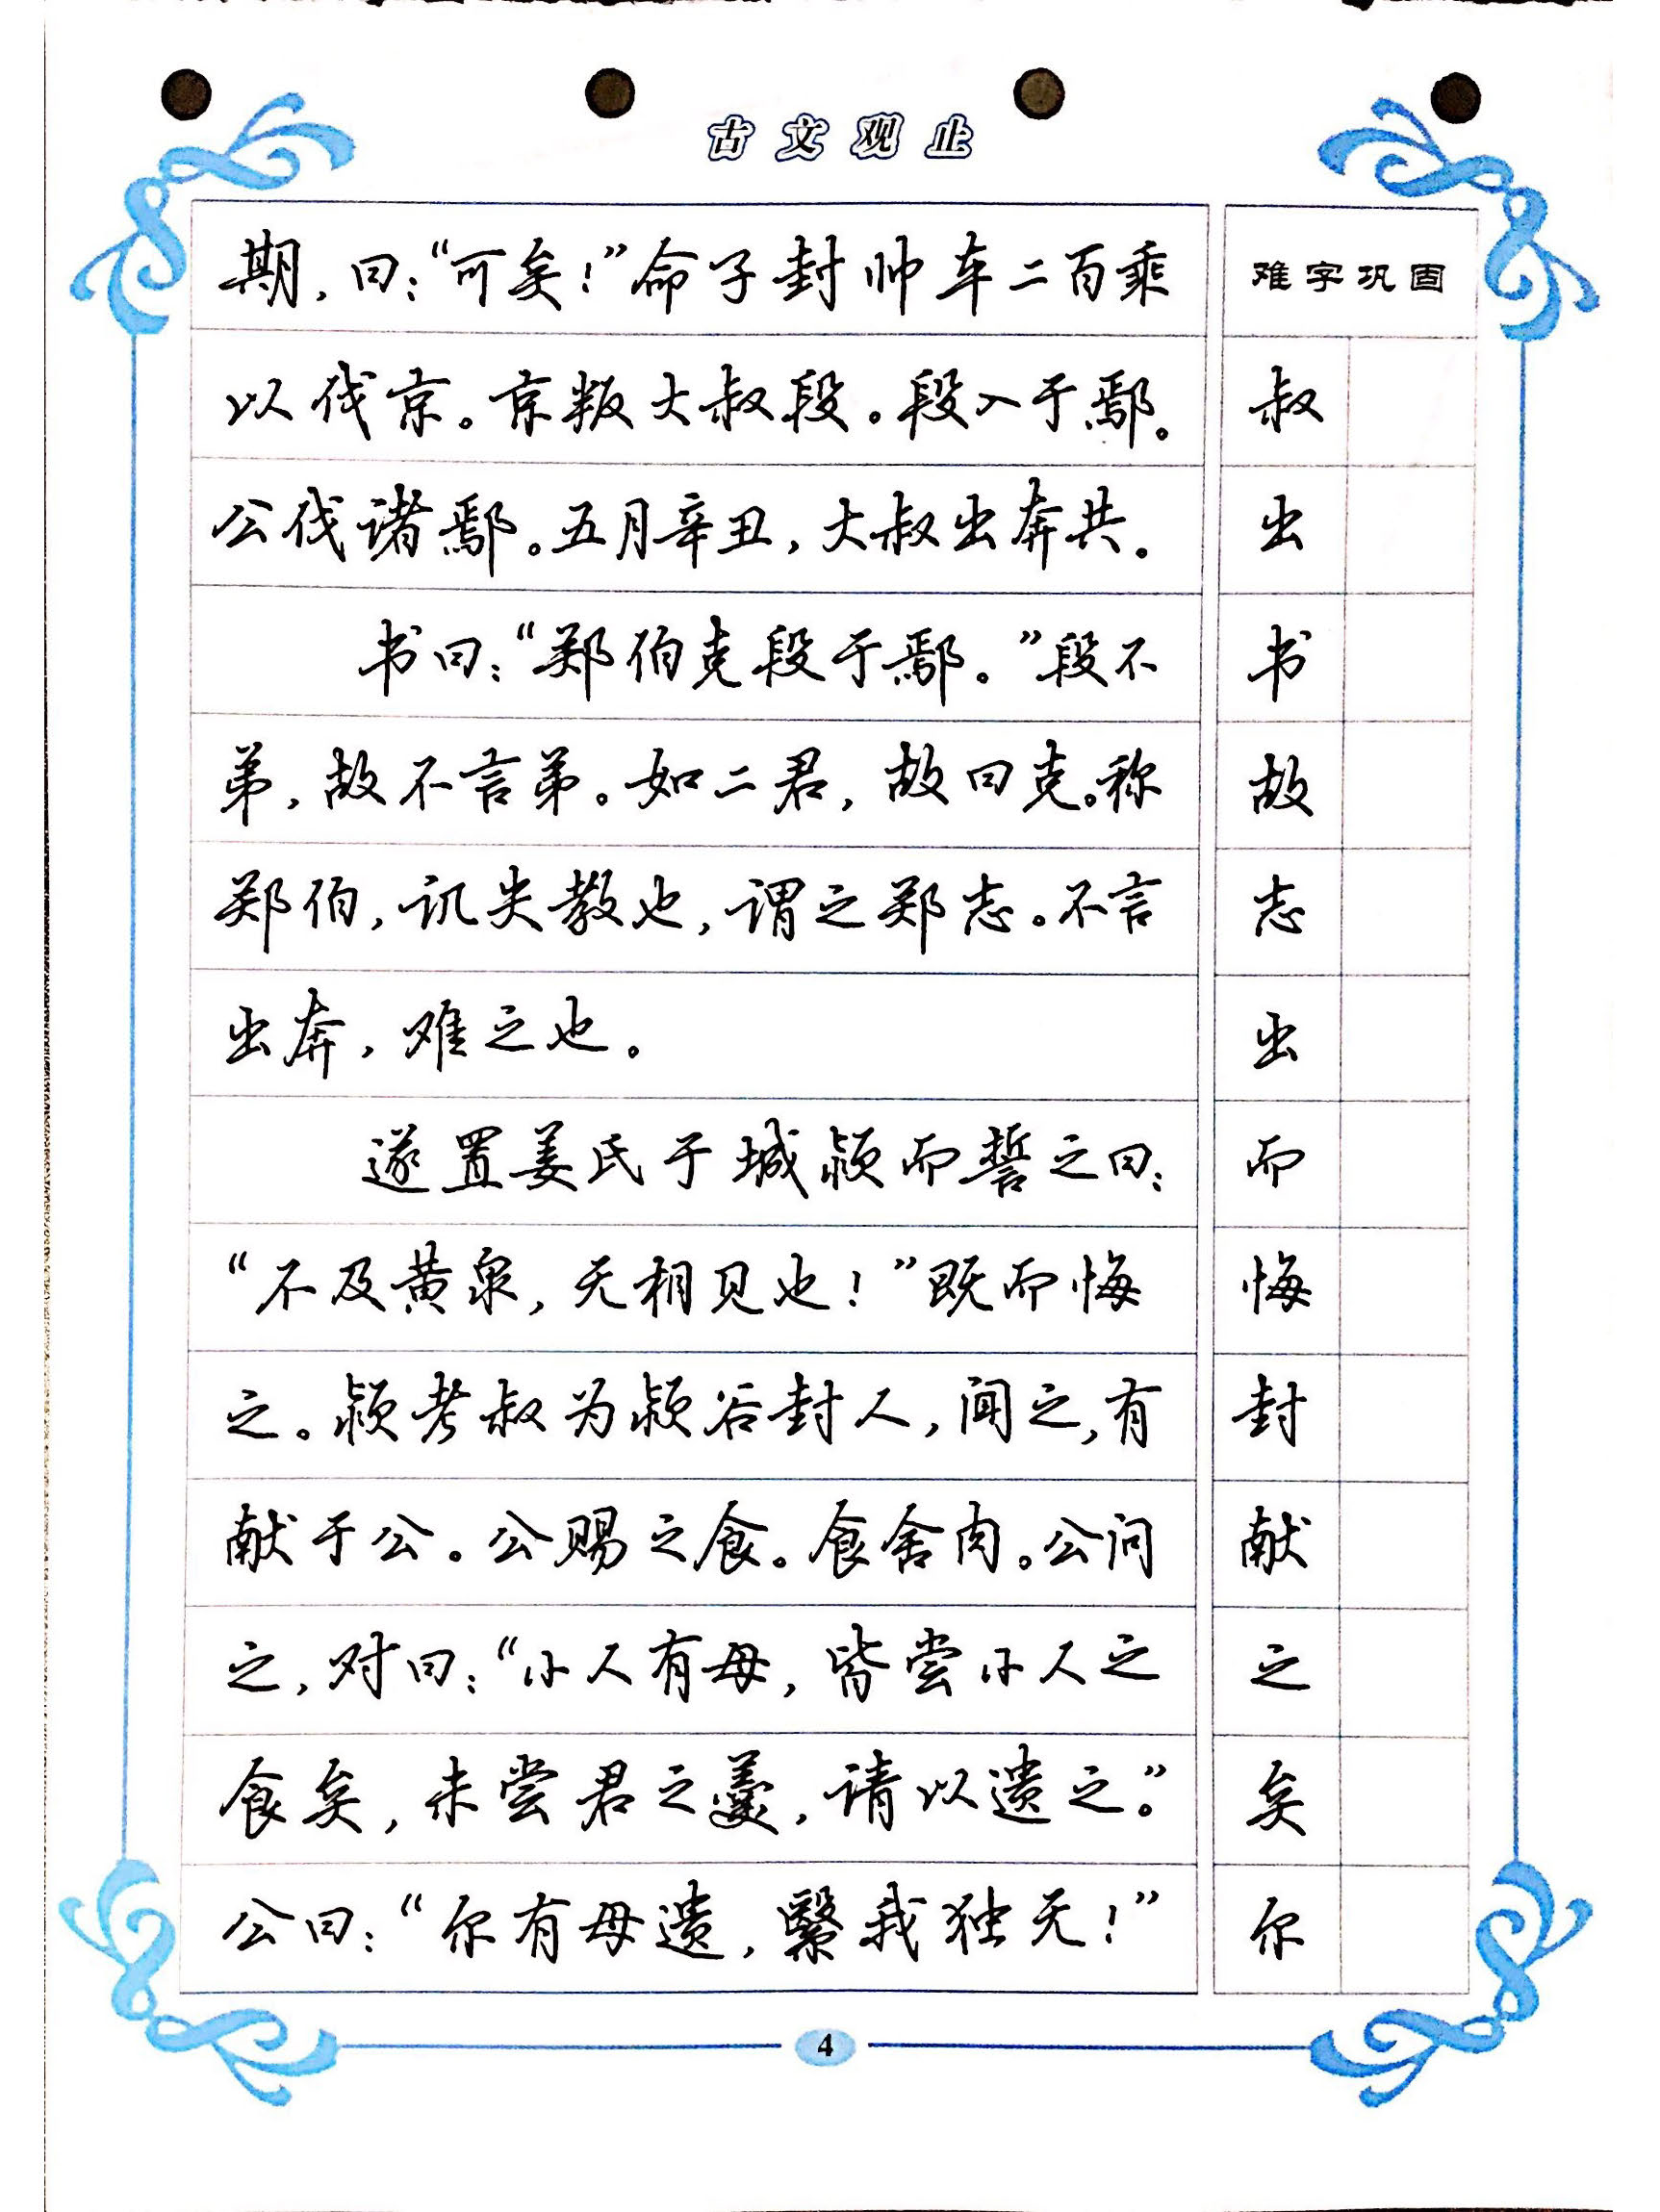 古文观止
期，曰：“可矣！”命子封帅车二百乘
以伐京。京叛大叔段。段入于鄢。
公伐诸鄢。五月辛丑，大叔出奔共。
书曰：“郑伯克段于鄢。”段不
弟，故不言弟。如二君，故曰克。称
郑伯，讥失教也，谓之郑志。不言
出奔，难之也。
遂置姜氏于城颍而誓之曰：
“不及黄泉，无相见也！”既而悔
之。颍考叔为颍谷封人，闻之，有
献于公。公赐之食。食舍肉。公问
之，对曰：“小人有母，皆尝小人之
食矣，未尝君之羹，请以遗之。”
公曰：“尔有母遗，繄我独无！”
难字巩固
叔
出
书
故
志
出
而
悔
封
献
之
矣
尔
4